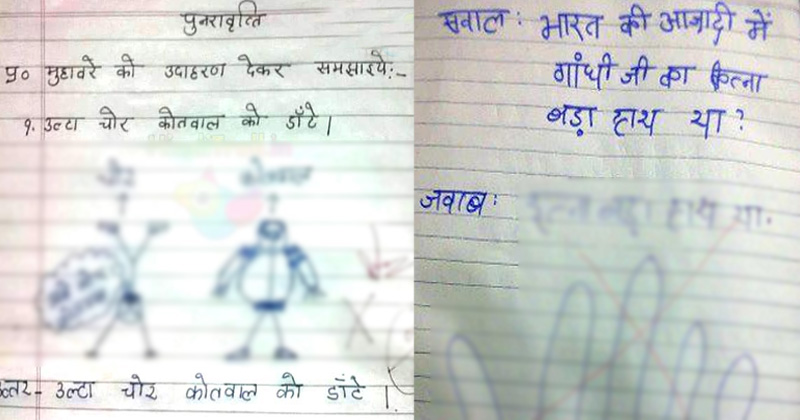 पुनरावृत्ति
प्र० मुहावरे को उदाहरण देकर समझाइये:-
१. उल्टा चोर कोतवाल को डाँटे।
उत्तर- उल्टा चोर कोतवाल को डाँटे।
सवाल: भारत की आजादी में
गांधी जी का कितना
बड़ा हाथ था?
जवाब: हाथ था.